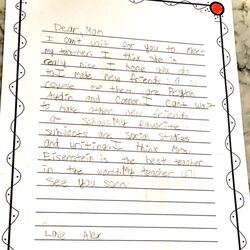 Dear Mom
I can't wait for you to meet
my teacher. I think she is
really nice. I know you do
I made new friends
couple are
Aydin and Connor. I Can't wait
to make other new friends
at school. My favorite
subjects are Social Studies
and writing. I think Mrs.
Eisenstein is the best teacher
in the world. My teacher will
see you soon.
Love Alex